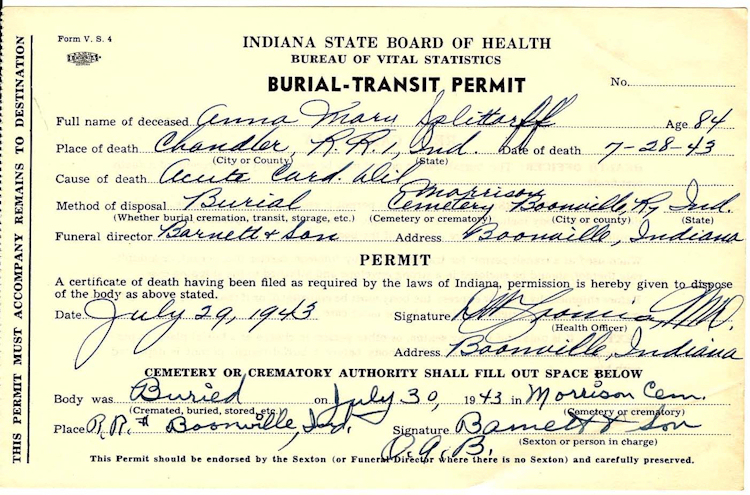 THIS PERMIT MUST ACCOMPANY REMAINS TO DESTINATION
Form V. S. 4
INDIANA STATE BOARD OF HEALTH
BUREAU OF VITAL STATISTICS
BURIAL-TRANSIT PERMIT
No.
Full name of deceased Anna Mary Splittorff Age 84
Place of death Chandler, R.R. 1, Ind. Date of death 7-28-43
(City or County) (State)
Cause of death Acute Card. Dil.
Method of disposal Burial Morrison Cemetery Boonville, R, Ind.
(Whether burial cremation, transit, storage, etc.) (Cemetery or crematory) (City or county) (State)
Funeral director Barnett & Son Address Boonville, Indiana
PERMIT
A certificate of death having been filed as required by the laws of Indiana, permission is hereby given to dispose
of the body as above stated.
Date July 29, 1943 Signature
(Health Officer)
Address Boonville, Indiana
CEMETERY OR CREMATORY AUTHORITY SHALL FILL OUT SPACE BELOW
Body was Buried on July 30, 1943 in Morrison Cem.
(Cremated, buried, stored, etc.) (Cemetery or crematory)
Place R.R. # Boonville, Ind. Signature Barnett & Son
O.A.B.
(Sexton or person in charge)
This Permit should be endorsed by the Sexton (or Funeral Director where there is no Sexton) and carefully preserved.